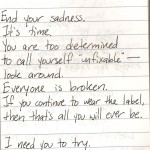 End your sadness.
It's time.
You are too determined
to call yourself "unfixable"—
look around.
Everyone is broken.
If you continue to wear the label,
then that's all you will ever be.
I need you to try.